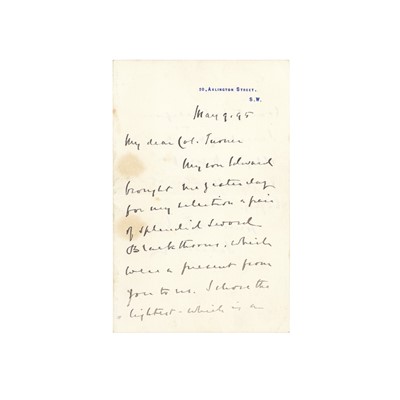 20, ARLINGTON STREET,
S.W.
May 9. 95
My dear Col. Turner
My son Edward
brought me yesterday
for my selection a pair
of splendid Sword
Blackthorns, which
were a present from
you to us. I chose the
lightest - which is a